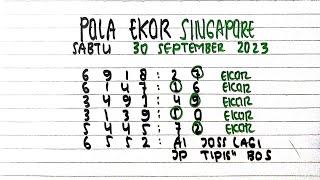 POLA EKOR SINGAPORE
SABTU 30 SEPTEMBER 2023
6 9 1 8 : 2 7 EKOR
6 1 4 7 : 1 6 EKOR
3 4 9 1 : 4 9 EKOR
3 1 3 9 : 1 0 EKOR
5 4 4 5 : 7 2 EKOR
6 5 5 2 : AI JOSS LAGI
JP TIPIS" BOS